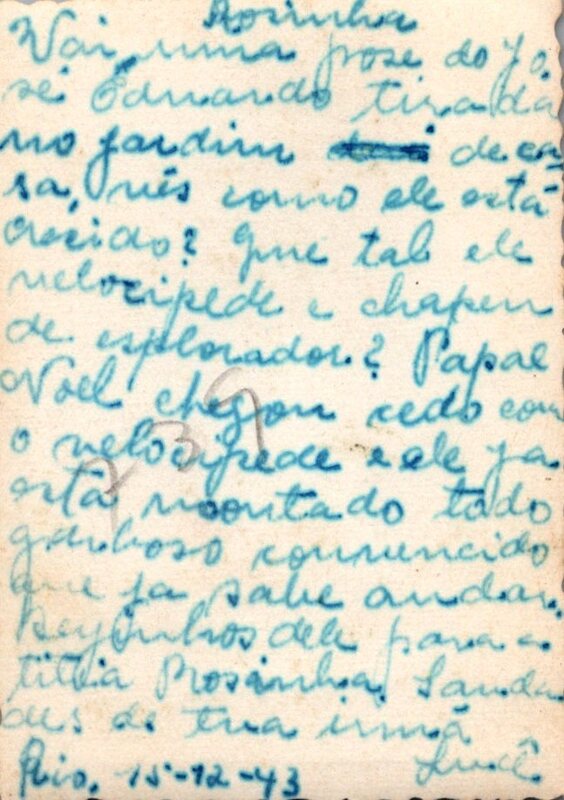 Rosinha
Vai, uma pose do Jo
sé Eduardo tirada
no jardim de ca
sa, vês como ele está
crecido? Que tal ele
velocipede e chapeu
de esplorador? Papae
Noel chegou cedo com
o velocipede e ele ja
está montado todo
garboso convencido
que ja sabe andar.
Beijinhos dele para a
titia Rosinha. Sauda
des de tua irmã
Rio, 15-12-43
739